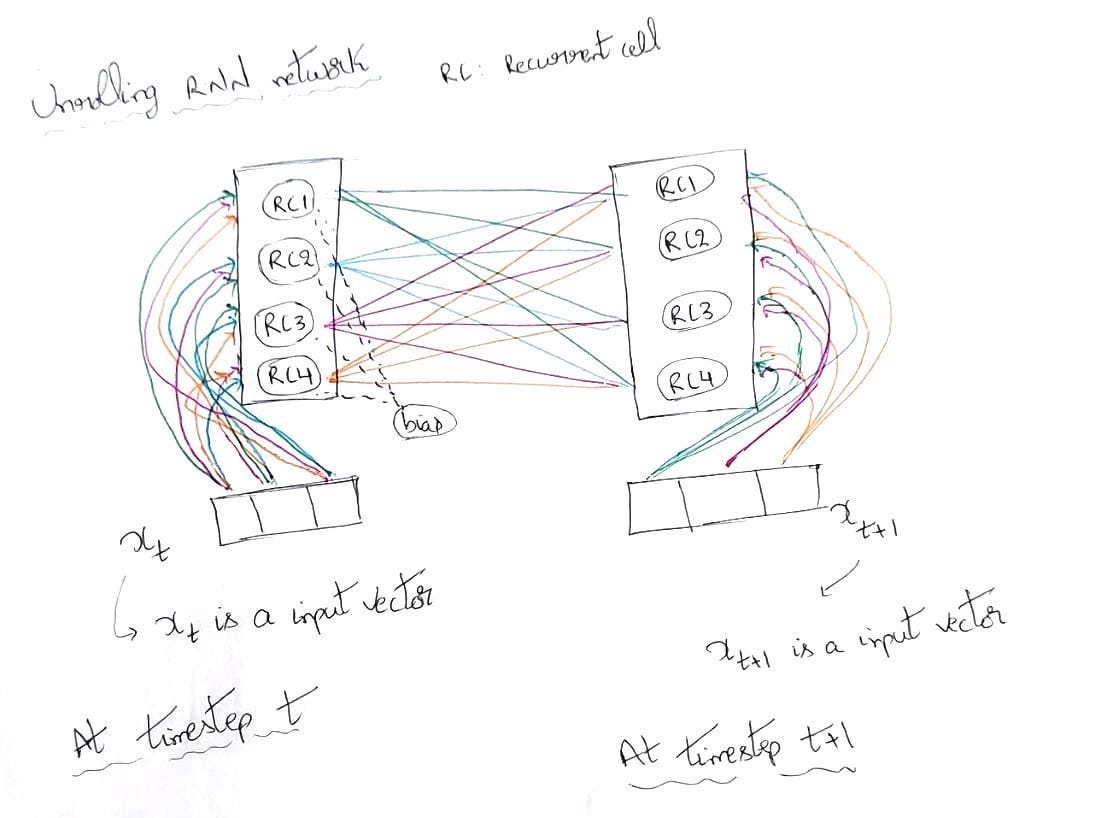 Unrolling RNN network
RC: Recurrent cell
RC1
RC2
RC3
RC4
bias
RC1
RC2
RC3
RC4
x_t
x_t is a input vector
At timestep t
x_t+1
x_t+1 is a input vector
At timestep t+1